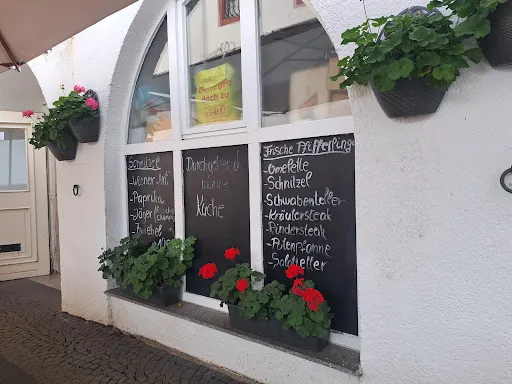 Schnitzel
-Wiener Art
-Paprika
-Jäger
-Zwiebel
Durchgehend
warme
Küche
Frische Pfifferlinge
-Omelette
-Schnitzel
-Schwabenteller
-Kräutersteak
-Rindersteak
-Pilzpfanne
-Salatteller